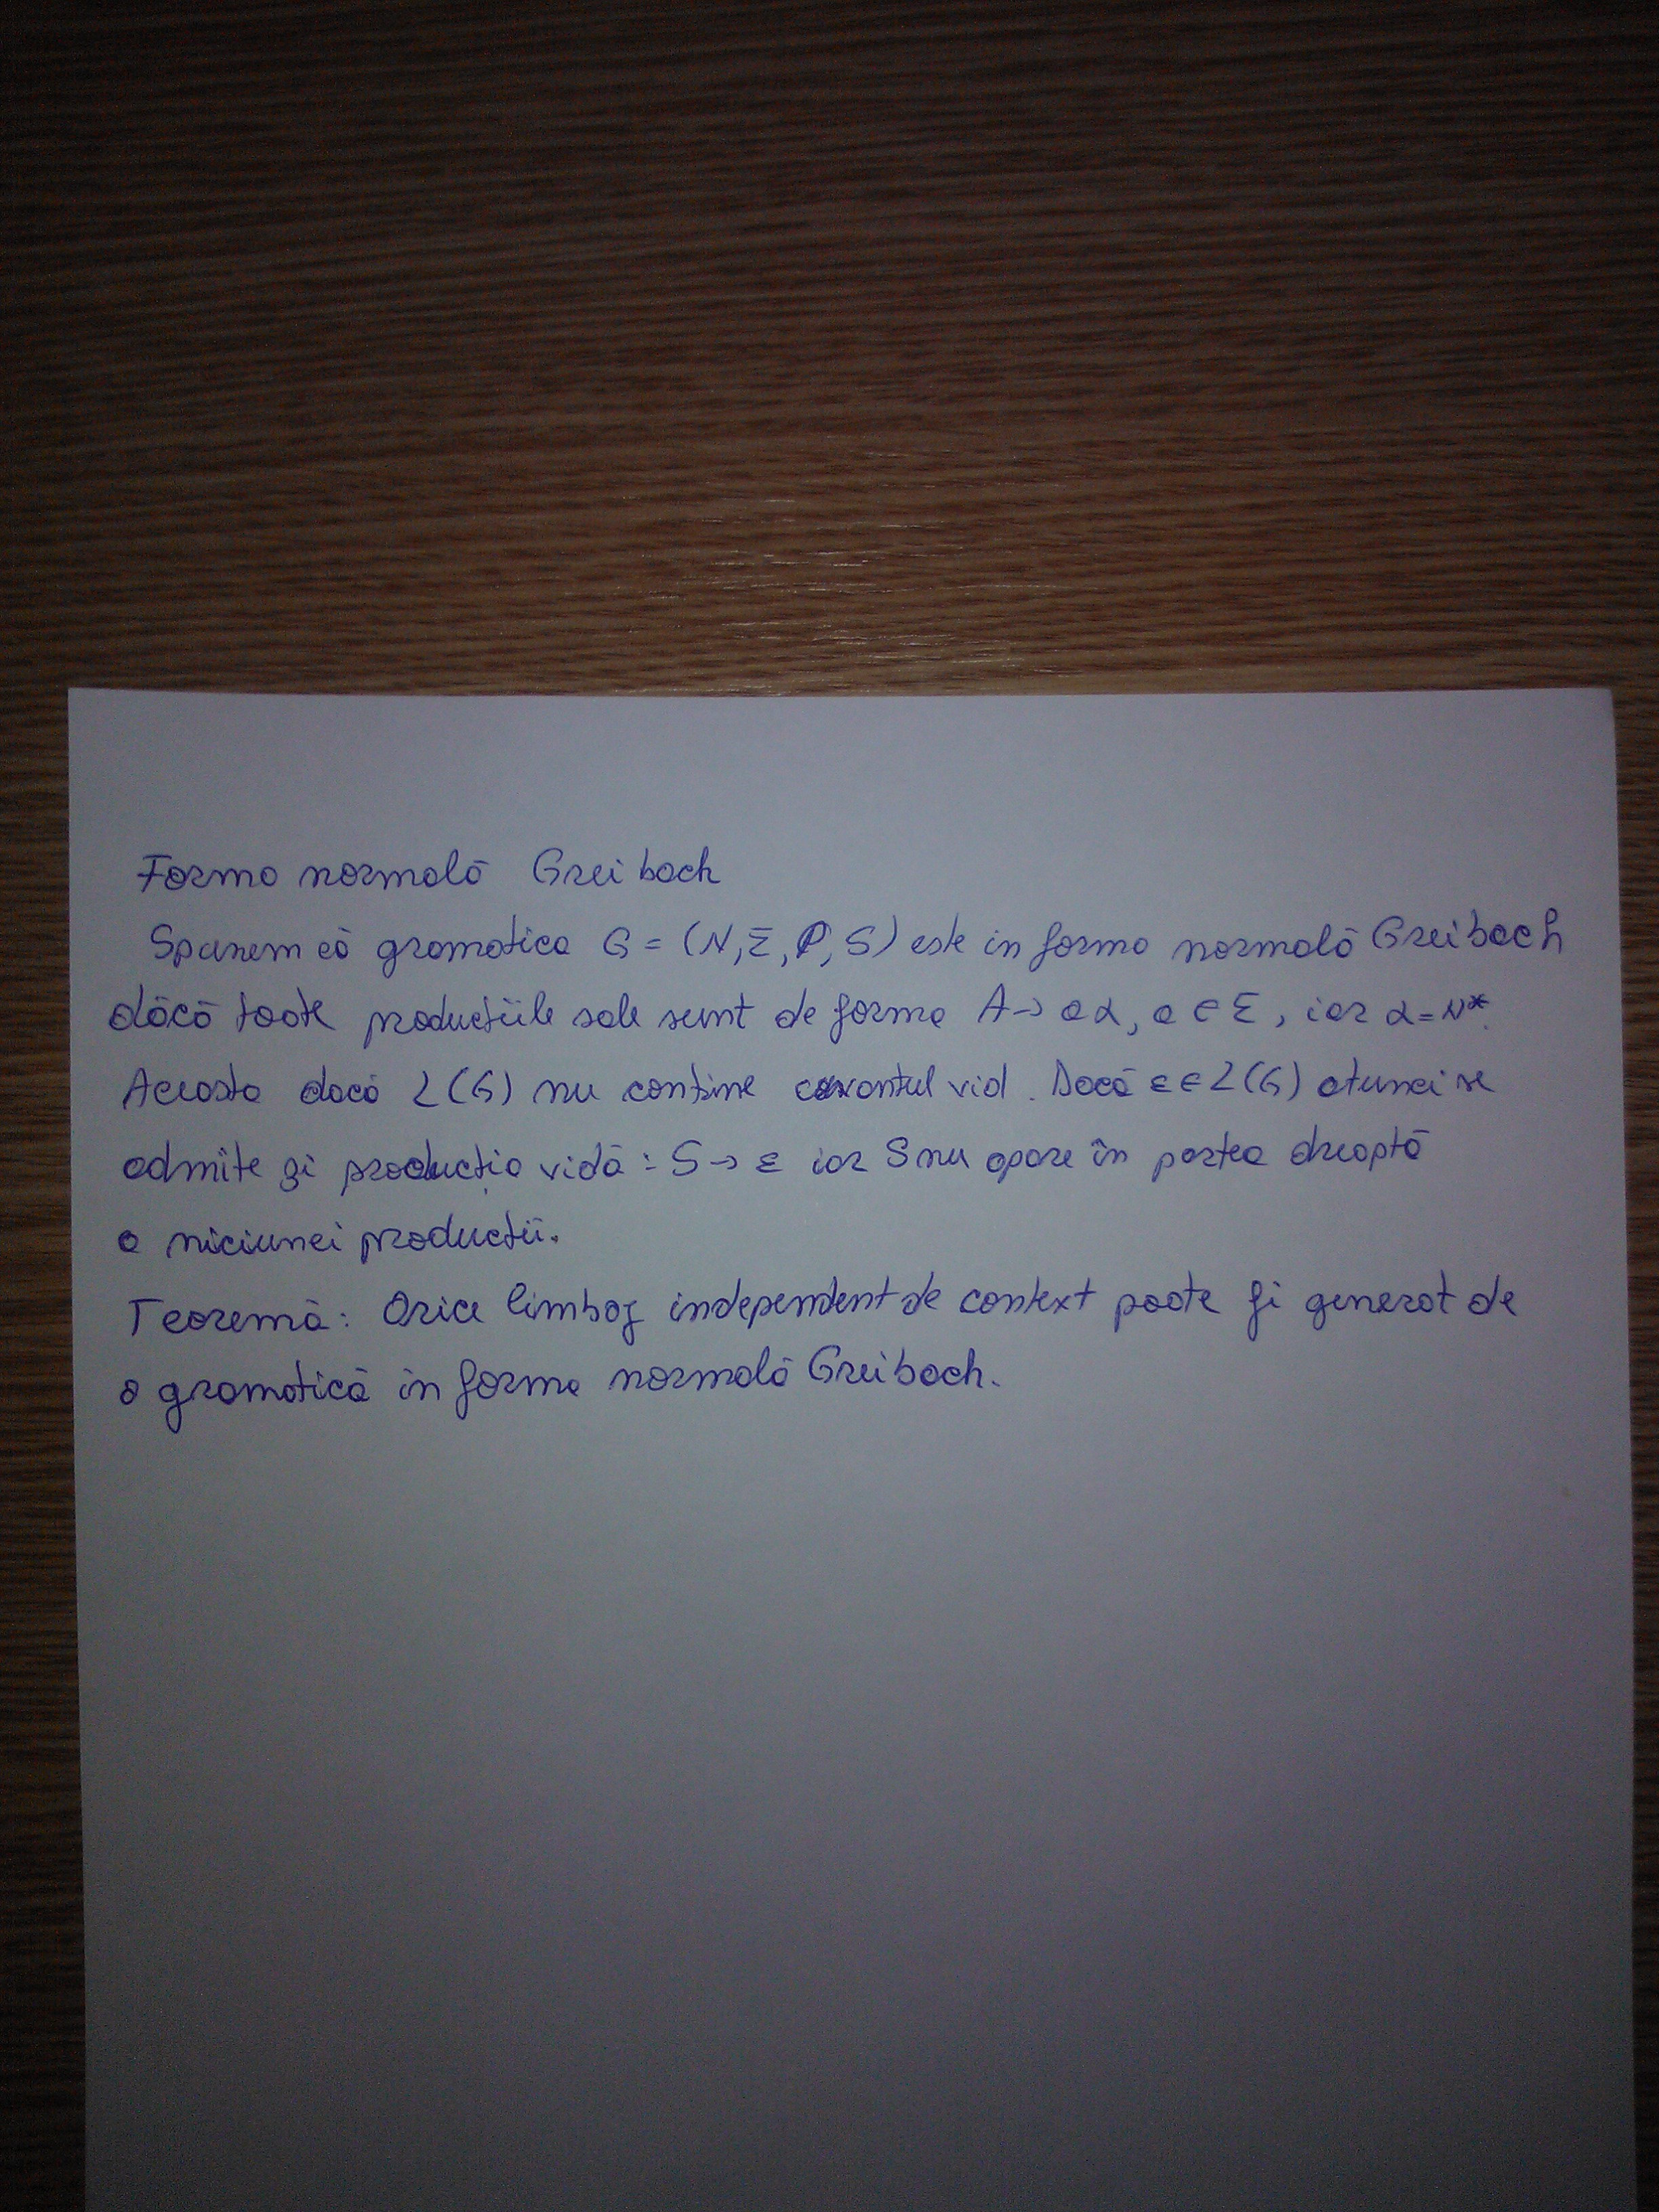 Forma normală Greibach
Spunem că gramatica G = (N, Σ, P, S) este in forma normală Greibach
dăcă toate producțiile sale sunt de forma A → aα, a ∈ Σ, iar α = N*.
Aceasta dacă L(G) nu conține cuvantul vid. Dacă ε ∈ L(G) atunci se
admite și producția vidă : S → ε iar S nu apare în partea dreaptă
a niciunei producții.
Teoremă: Orice limbaj independent de context poate fi generat de
o gramatică în forma normală Greibach.